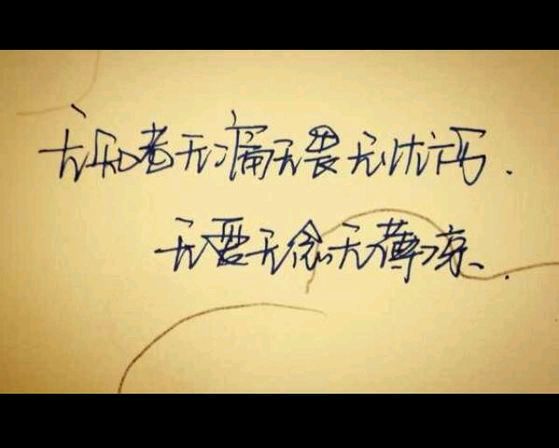 无知者无痛无畏无忧伤.
无爱无念无薄凉、.